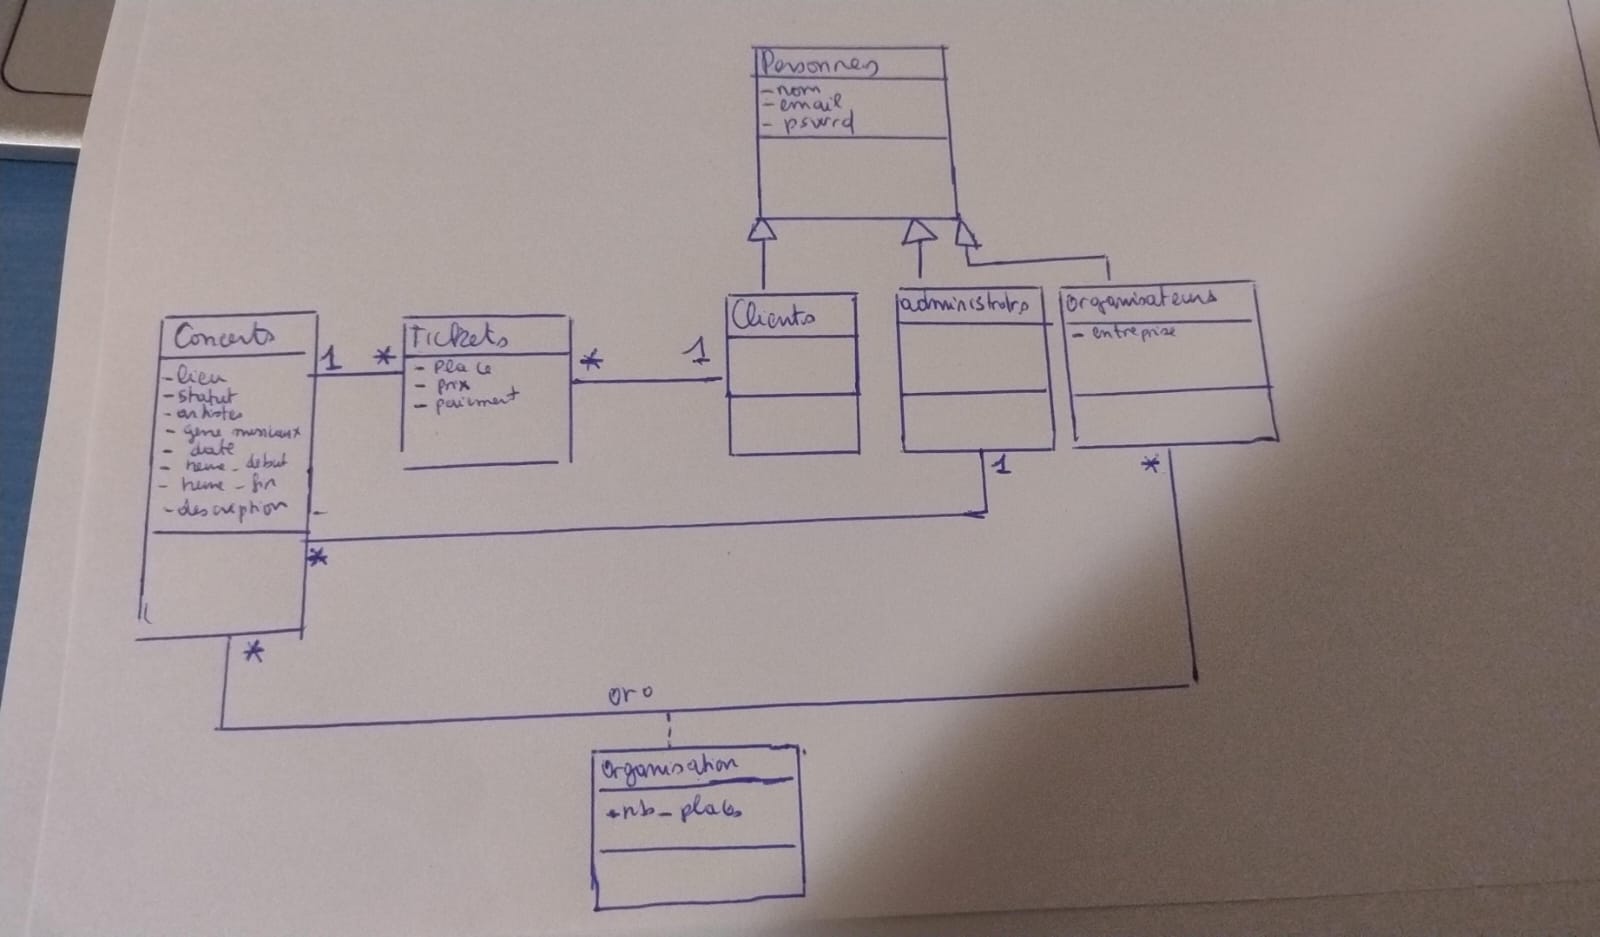 Personnes
- nom
- email
- pswrd
Concerts
- lieu
- statut
- artistes
- genre musicaux
- date
- heure_debut
- heure_fin
- description
1
*
Tickets
- place
- prix
- paiement
*
1
Clients
organisateurs
- entreprise
1
*
*
*
organisation
nb_places